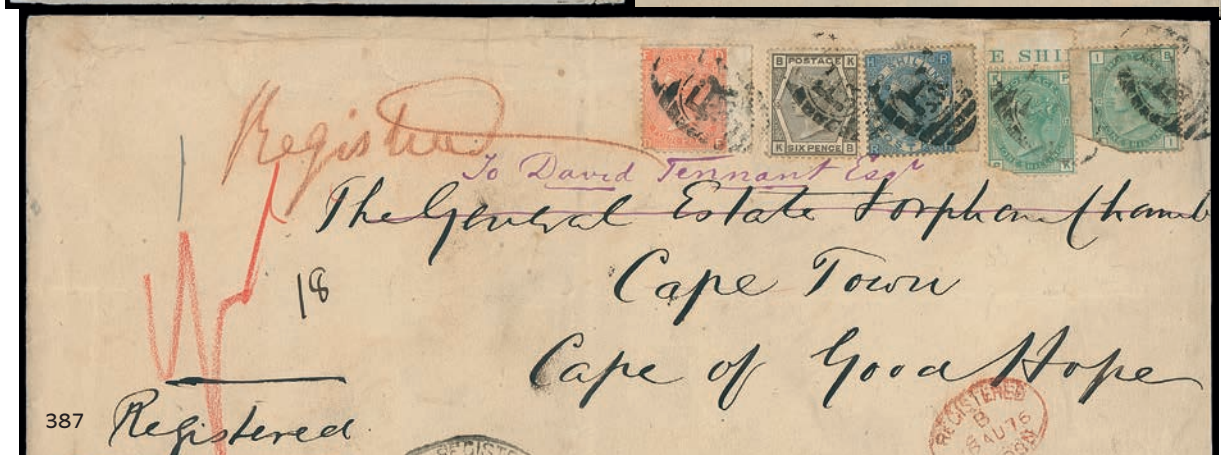 E SHI
B POSTAGE K
K SIX PENCE B
Registered
To David Tennant Esqr
The General Estate & orphan Chamb
Cape Town
18
Cape of Good Hope
387
Registered
REGISTERED
B
AU 76
REGISTE